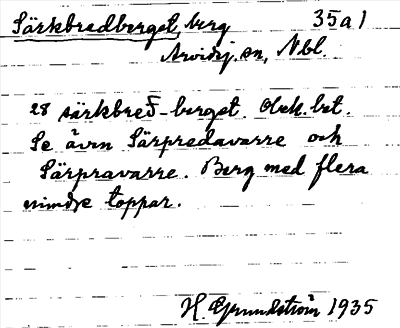 Särkbredberget, berg 35a1
Arvidsj. sn, Nbl
28 särkbreŏ-berget. Obek. bet.
Se även Särpredavarre och
Särpravarre. Berg med flera
mindre toppar.
H. Grundström 1935